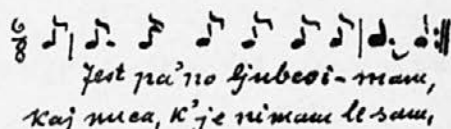 6/8
Jest pa'no ljubcoi-mam,
kaj nuca, k'je nimam le sam,